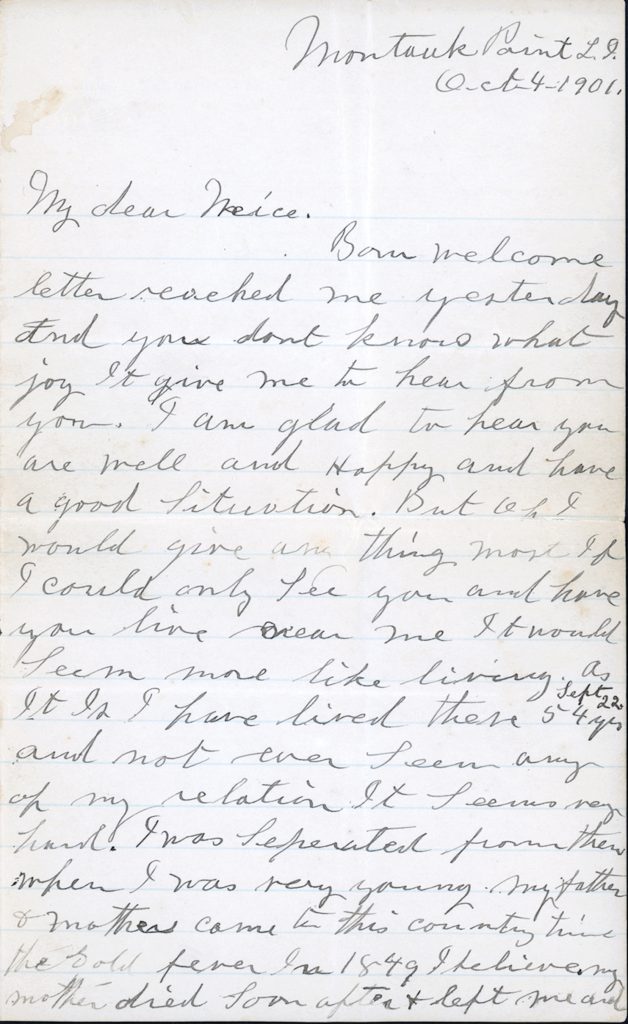 Montauk Point L.I.
Oct-4-1901.
My dear Neice.
Your welcome
letter reached me yesterday
And you dont know what
joy It give me to hear from
you. I am glad to hear you
are well and Happy and have
a good Situation. But Oh I
would give any thing most If
I could only See you and have
you live near me It would
Seem more like living. As
Sept 22
It Is I have lived these 54 yrs
and not ever Seem any
of my relation It Seems very
hard. I was Seperated from them
when I was very young. my father
& mother came to this country time
the Gold fever In 1849 I believe. my
mother died Soon after & left me and